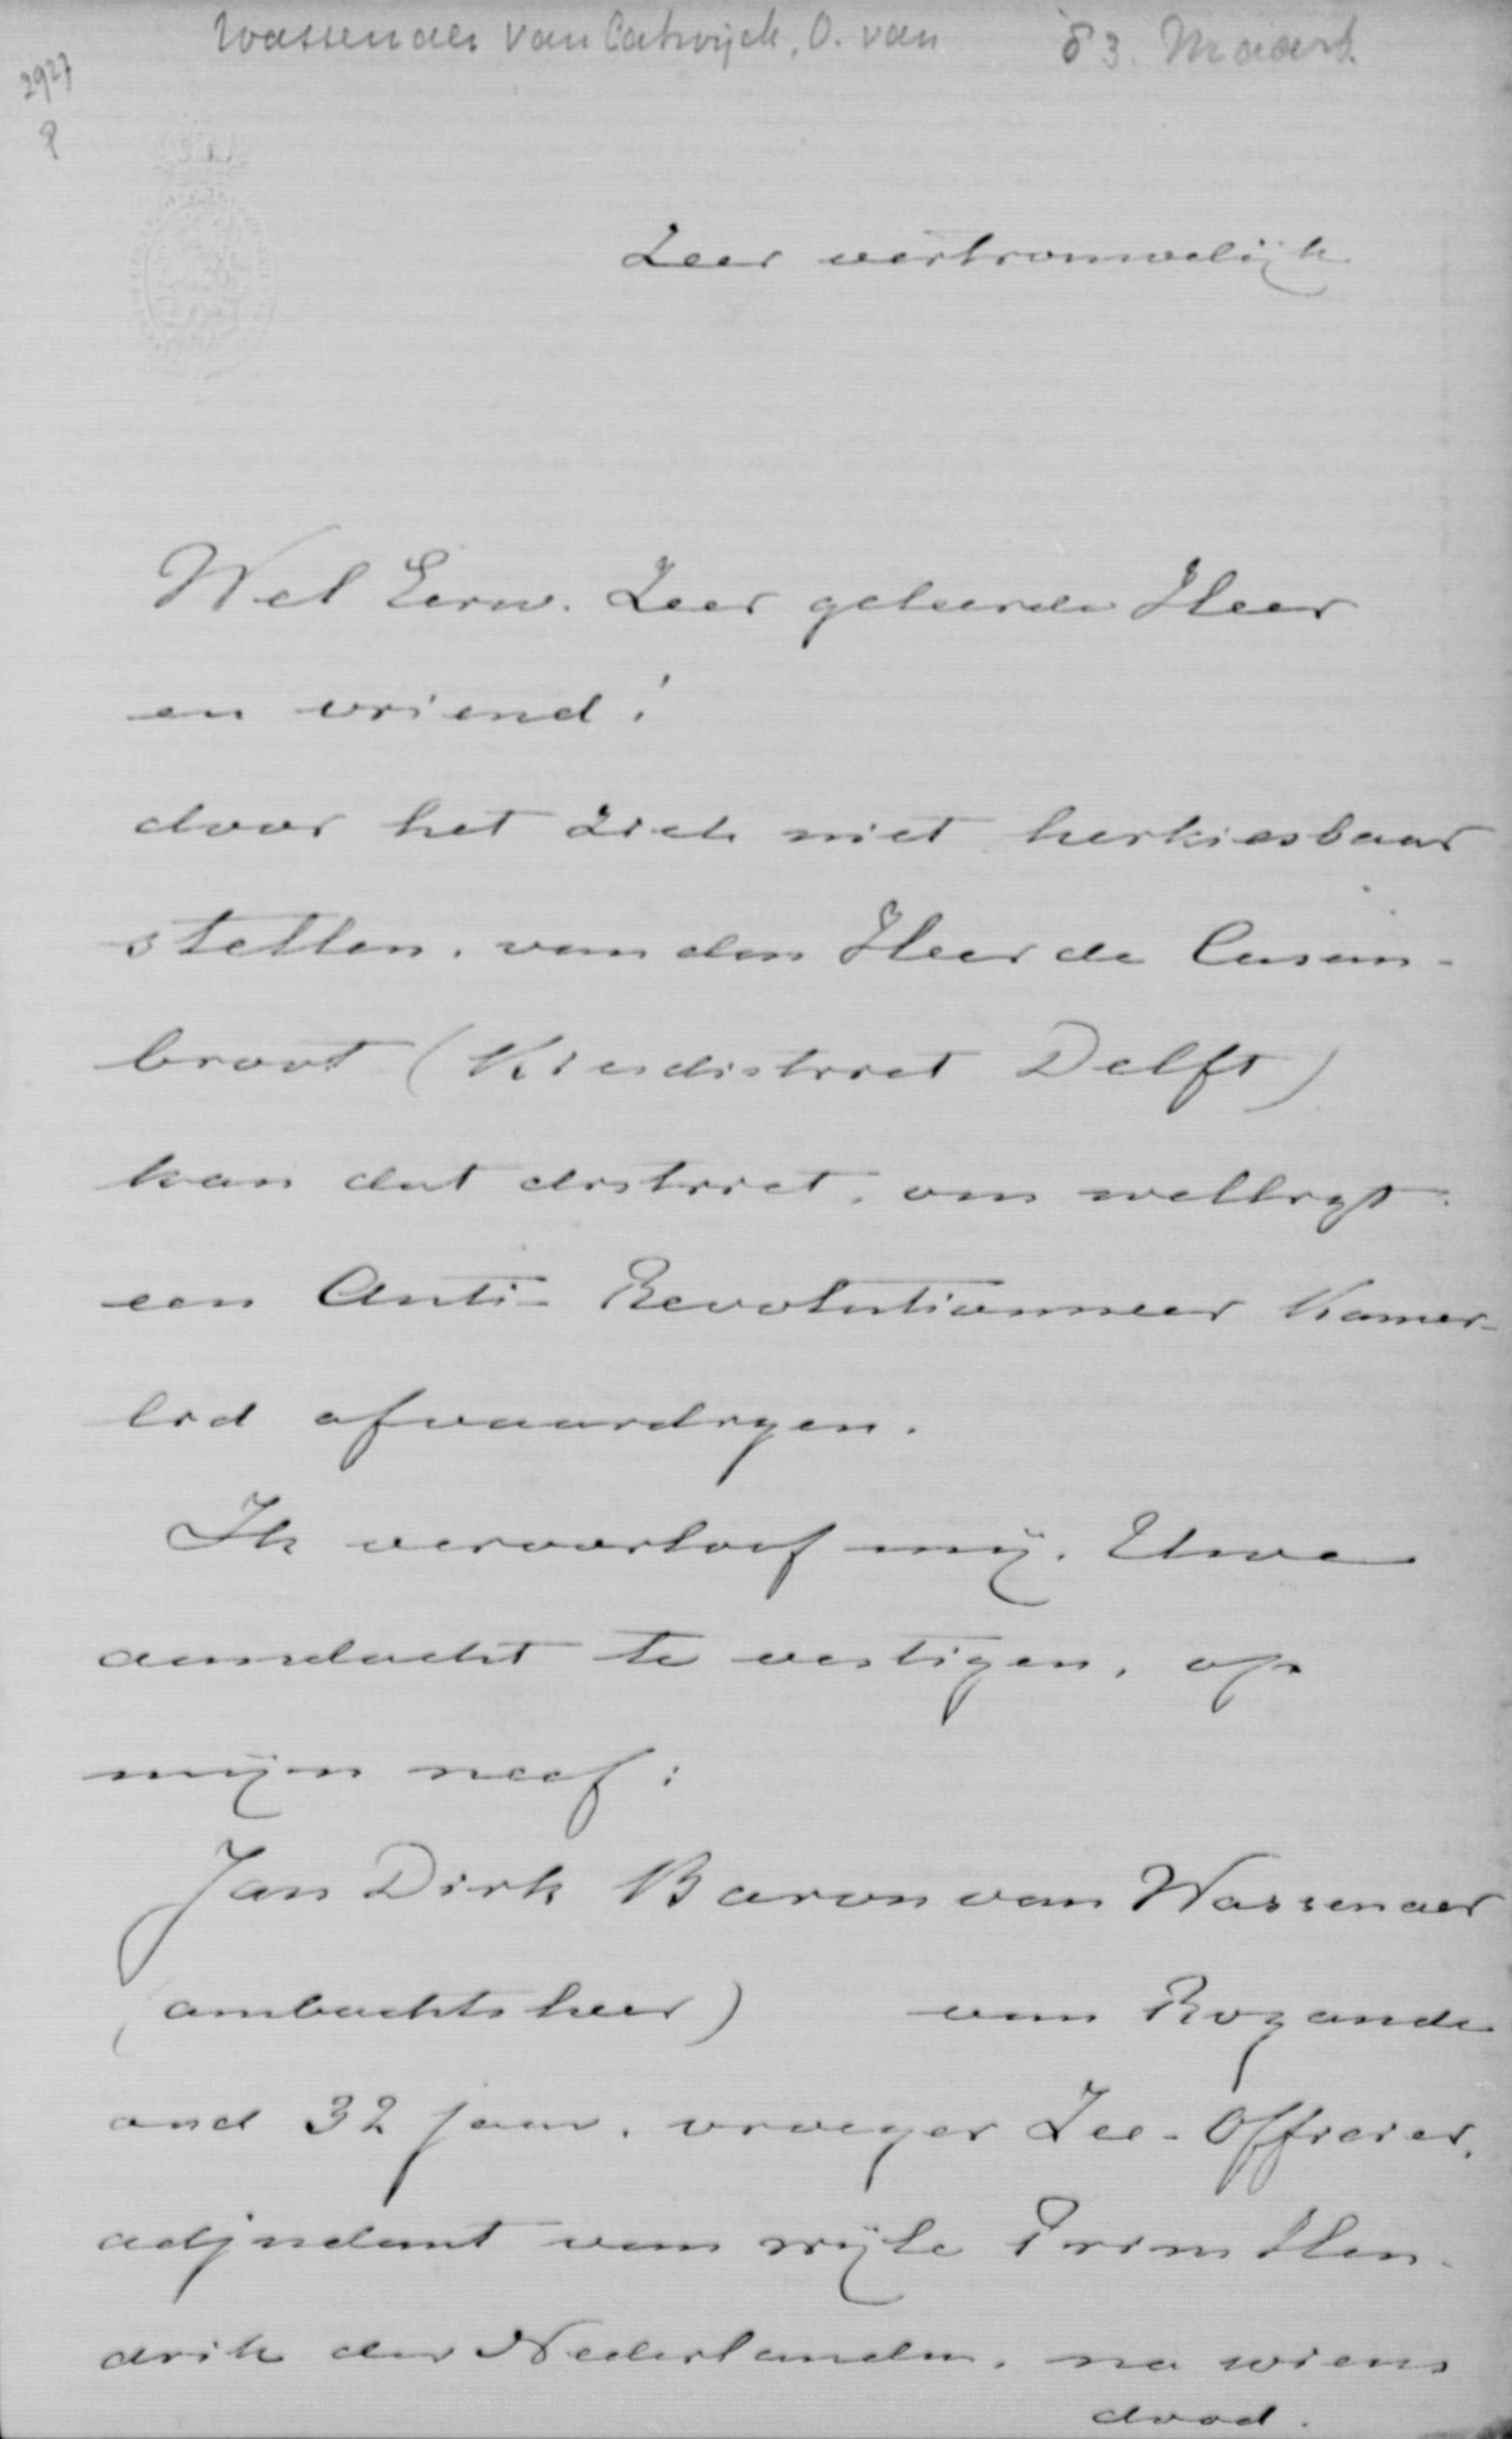 Wassenaer van Catwijck, O. van 83. Maart.
2927
Zeer vertrouwelijk
Wel Eerw. Zeer geleerde Heer
en vriend!
door het zich niet herkiesbaar
stellen, van den Heer de Casem-
broot (Kiesdistrict Delft)
kan dat district, ons welligt
een Anti-Revolutionneer Kamer-
lid afvaardigen.
Ik veroorloof mij. Uwe
aandacht te vestigen, op
mijn neef:
Jan Dirk Baron van Wassenaer
(ambachtsheer) van Rozande
oud 32 jaar, vroeger Zee-Officier,
adjudant van wijle Prins Hen-
drik der Nederlanden, na wiens
dood.